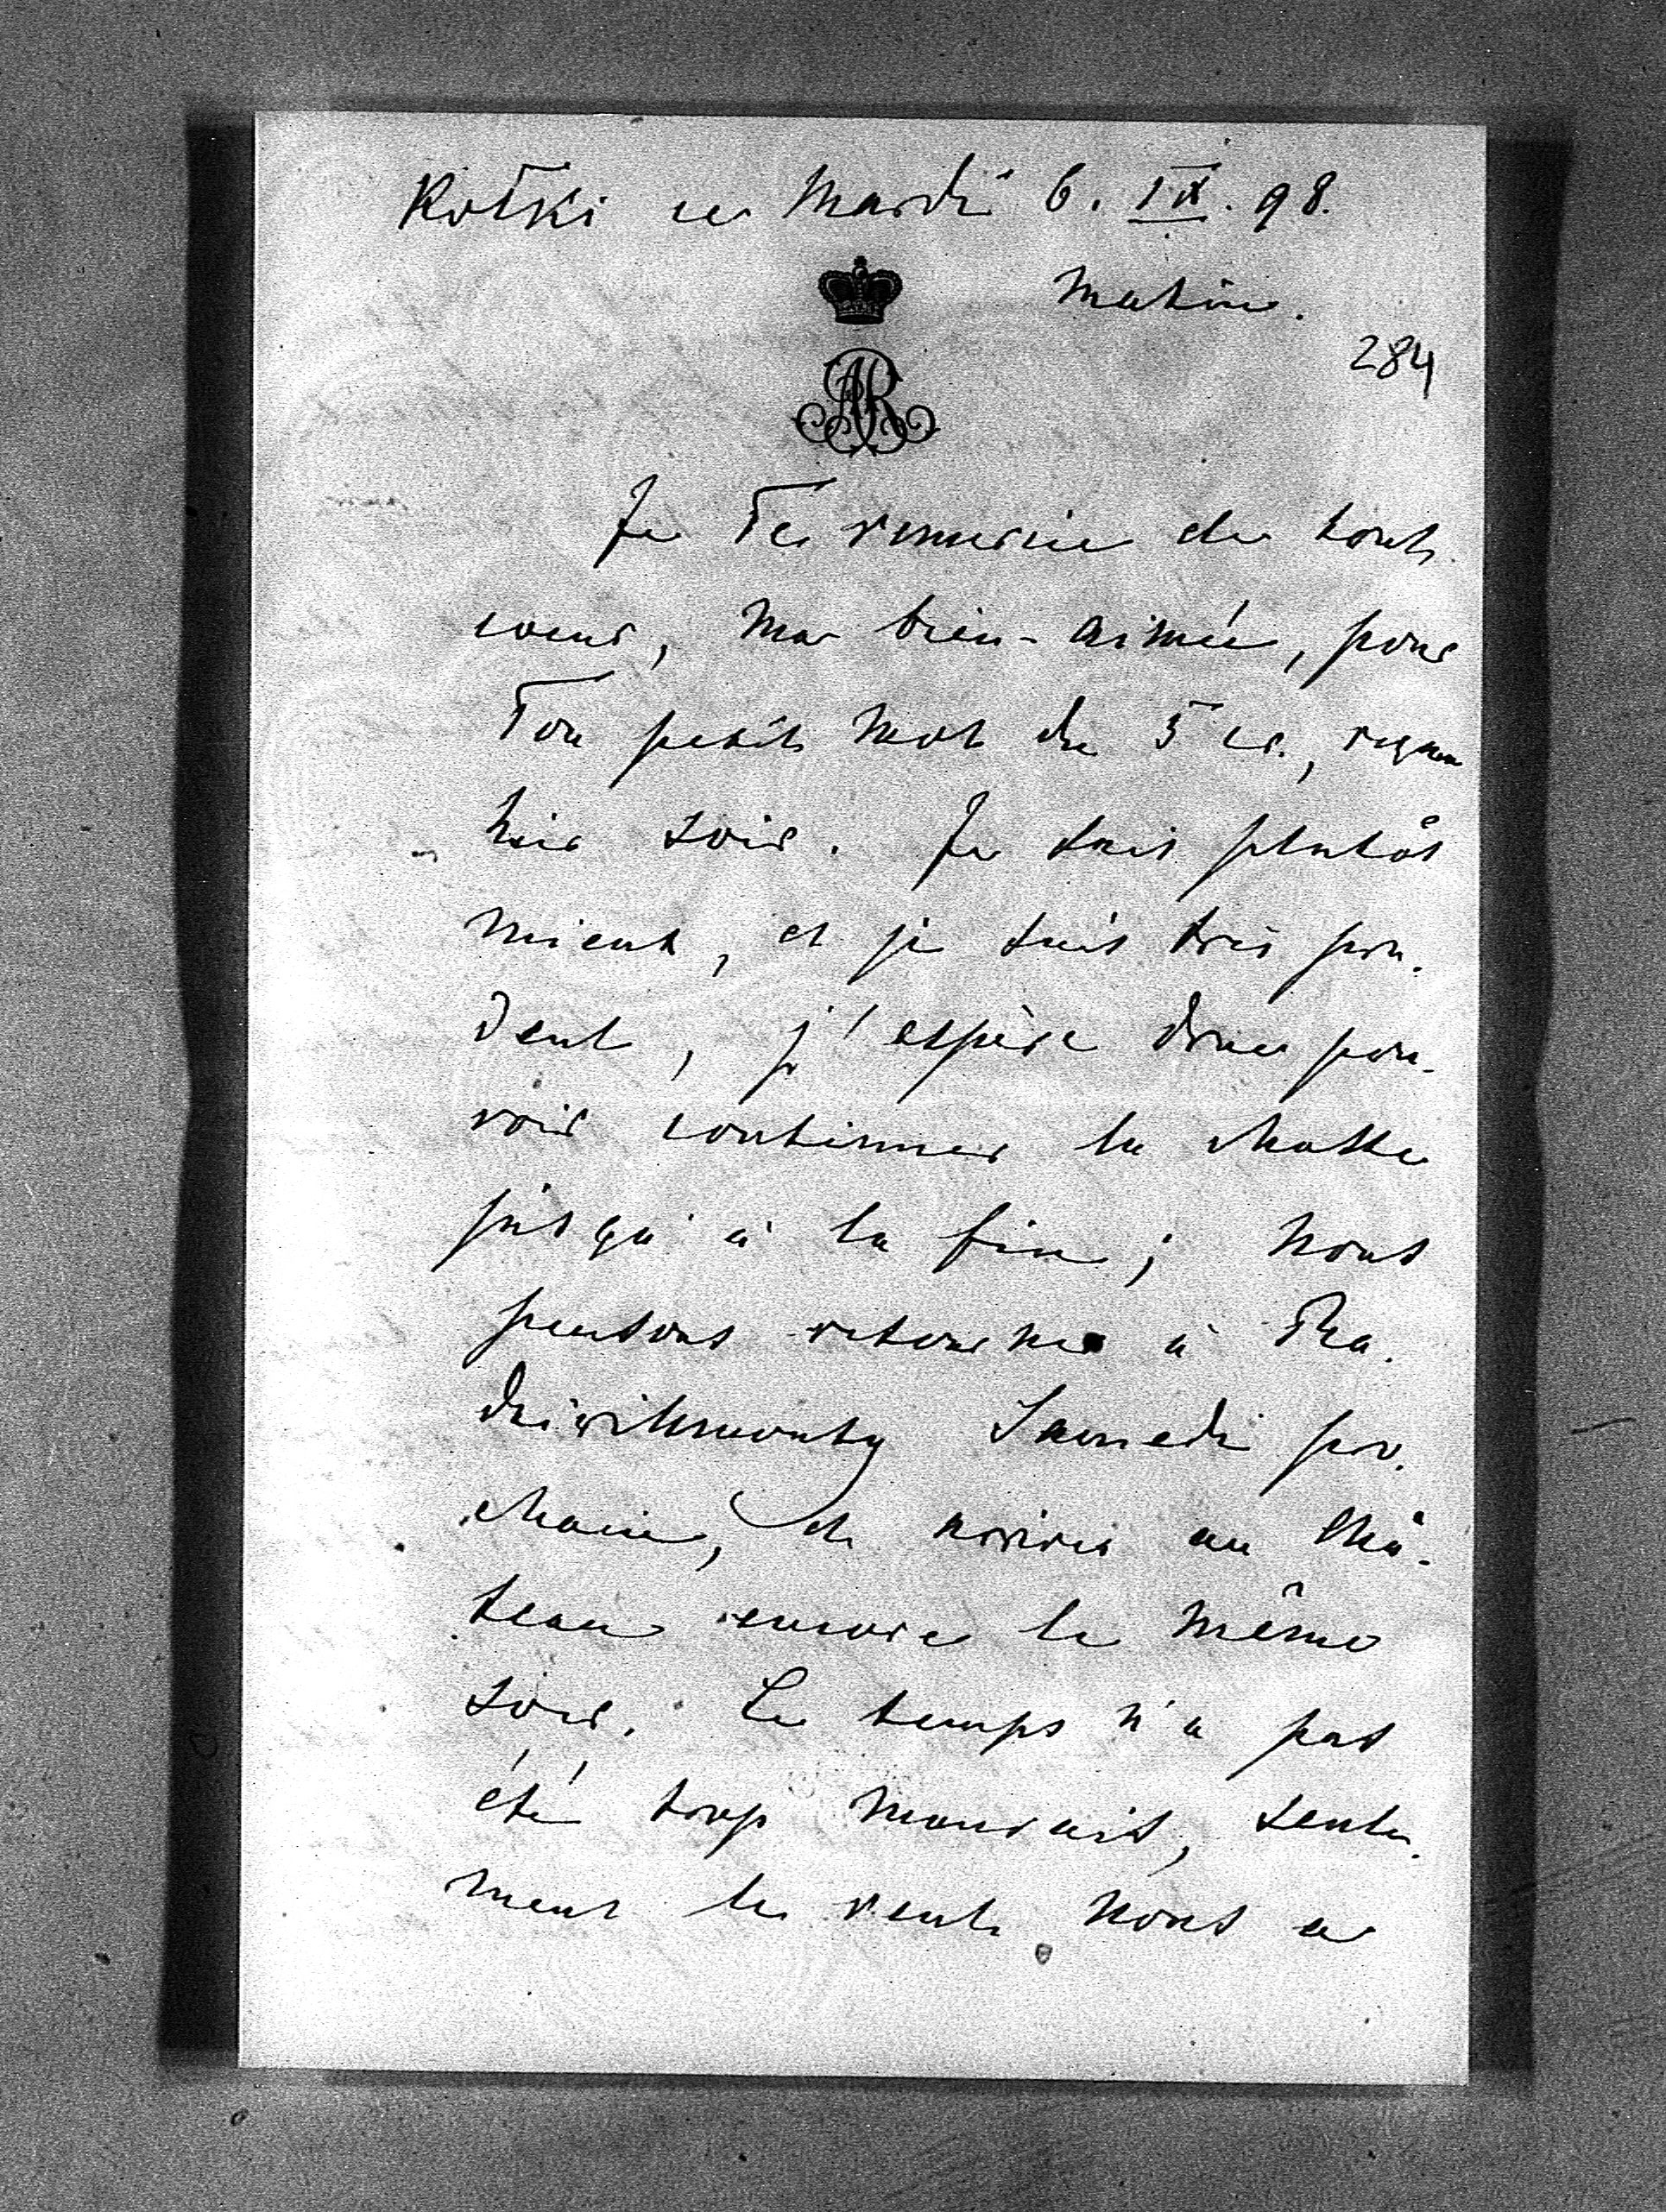 Kotki ce Mardi 6. IX. 98.
Matin.
284
AR
Je Te remercie de tout
coeur, Ma bien-aimée, pour
Ton petit mot du 5 cr., reçu
hier soir. Je suis plutôt
mieux, et je suis très pru-
dent, j'espère donc pou-
voir continuer la chasse
jusqu'à la fin; nous
pensons retourner à Ra-
dziwillmonty Samedi pro-
chain, et arriver au Châ-
teau encore le même
soir. Le temps n'a pas
été trop mauvais, seule-
ment le vent nous a